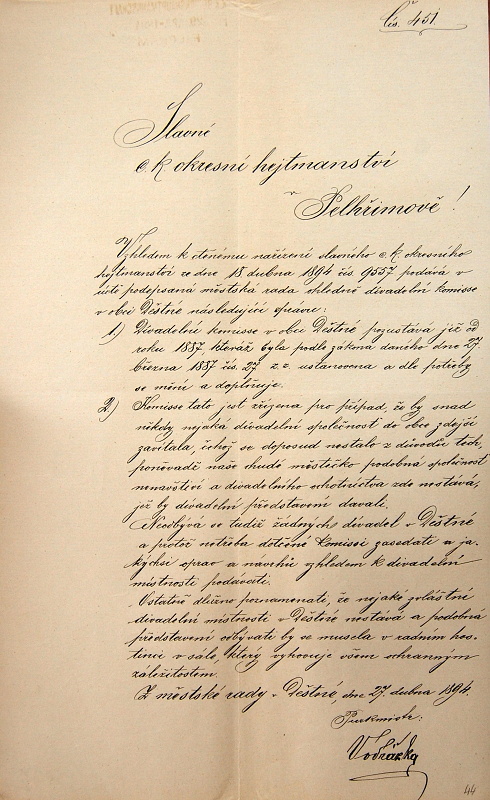 čís. 451
Slavné
c. k. okresní hejtmanství
v
Pelhřimově!
Vzhledem k ctěnému nařízení slavného c. k. okresního
hejtmanství ze dne 18 dubna 1894 čís. 9557 podává v
úctě podepsaná městská rada ohledně divadelní komisse
v obci Deštné následující zprávu:
1) Divadelní komisse v obci Deštné pozustává již od
roku 1887, kteráž byla podle zákona daného dne 27.
března 1887 čís. 27 z. z. ustanovena a dle potřeby
se mění a doplňuje.
2) Komisse tato jest zřízena pro případ, že by snad
někdy nějaká divadelní společnost do obce zdejší
zavítala, čehož se doposud nestalo z důvodu těch,
poněvadž naše chudé městečko podobná společnost
nenavštíví a divadelního ochotnictva zde nestává,
jež by divadelní představení davali.
Neodbývá se tudíž žádných divadel v Deštné
a protož netřeba dotčené komissi zasedati a ja-
kýchsi oprav a návrhů vzhledem k divadelní
místnosti podávati.
Ostatně dlužno poznamenati, že nejaké zvláštní
divadelní místnosti v Deštné nestává a podobná
představení odbývati by se musela v radním hos-
tinci v sále, který vyhovuje všem ochranným
záležitostem.
Z městské rady v Deštné, dne 27. dubna 1894.
Purkmistr:
Vodrážka
44